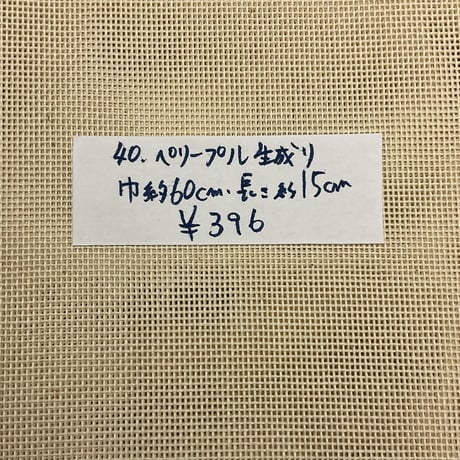 40. ペリープル 生成り
巾約60cm・長さ約15cm
¥396